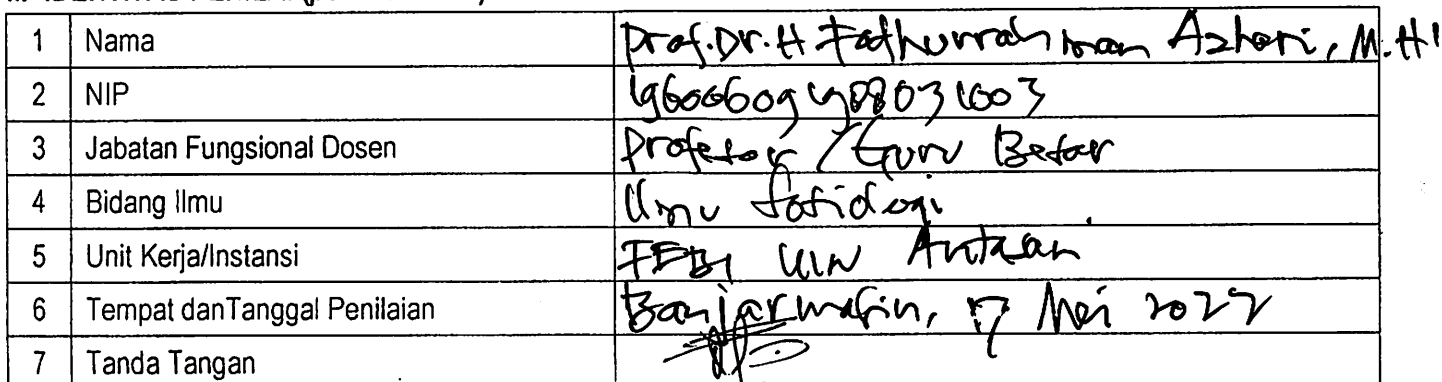 1 Nama Prof. Dr. H Fathurrahman Azhari, M.HI
2 NIP 196006091988031003
3 Jabatan Fungsional Dosen Profesor / Guru Besar
4 Bidang Ilmu Ilmu Sosiologi
5 Unit Kerja/Instansi FEBI UIN Antasari
6 Tempat danTanggal Penilaian Banjarmasin, 17 Mei 2022
7 Tanda Tangan